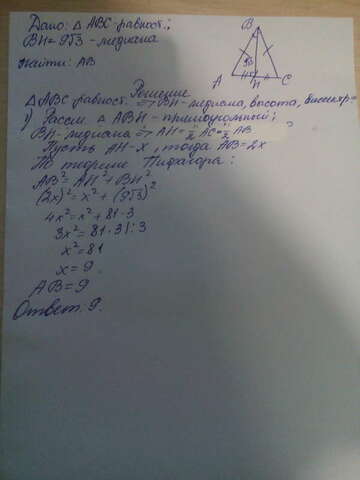 Дано: △ ABC-равност.;
BH=9√3 - медиана
Найти: AB
B
A
H
C
Решение
△ ABC-равност. ⇒ BH-медиана, высота, биссектр.
1) Рассм. △ ABH - прямоугольный;
BH-медиана ⇒ AH=½ AC=½ AB
Пусть AH-x, тогда AB=2x
По теореме Пифагора:
AB²=AH²+BH²
(2x)²=x²+(9√3)²
4x²=x²+81·3
3x²=81·3 |:3
x²=81
x=9
AB=9
Ответ: 9.